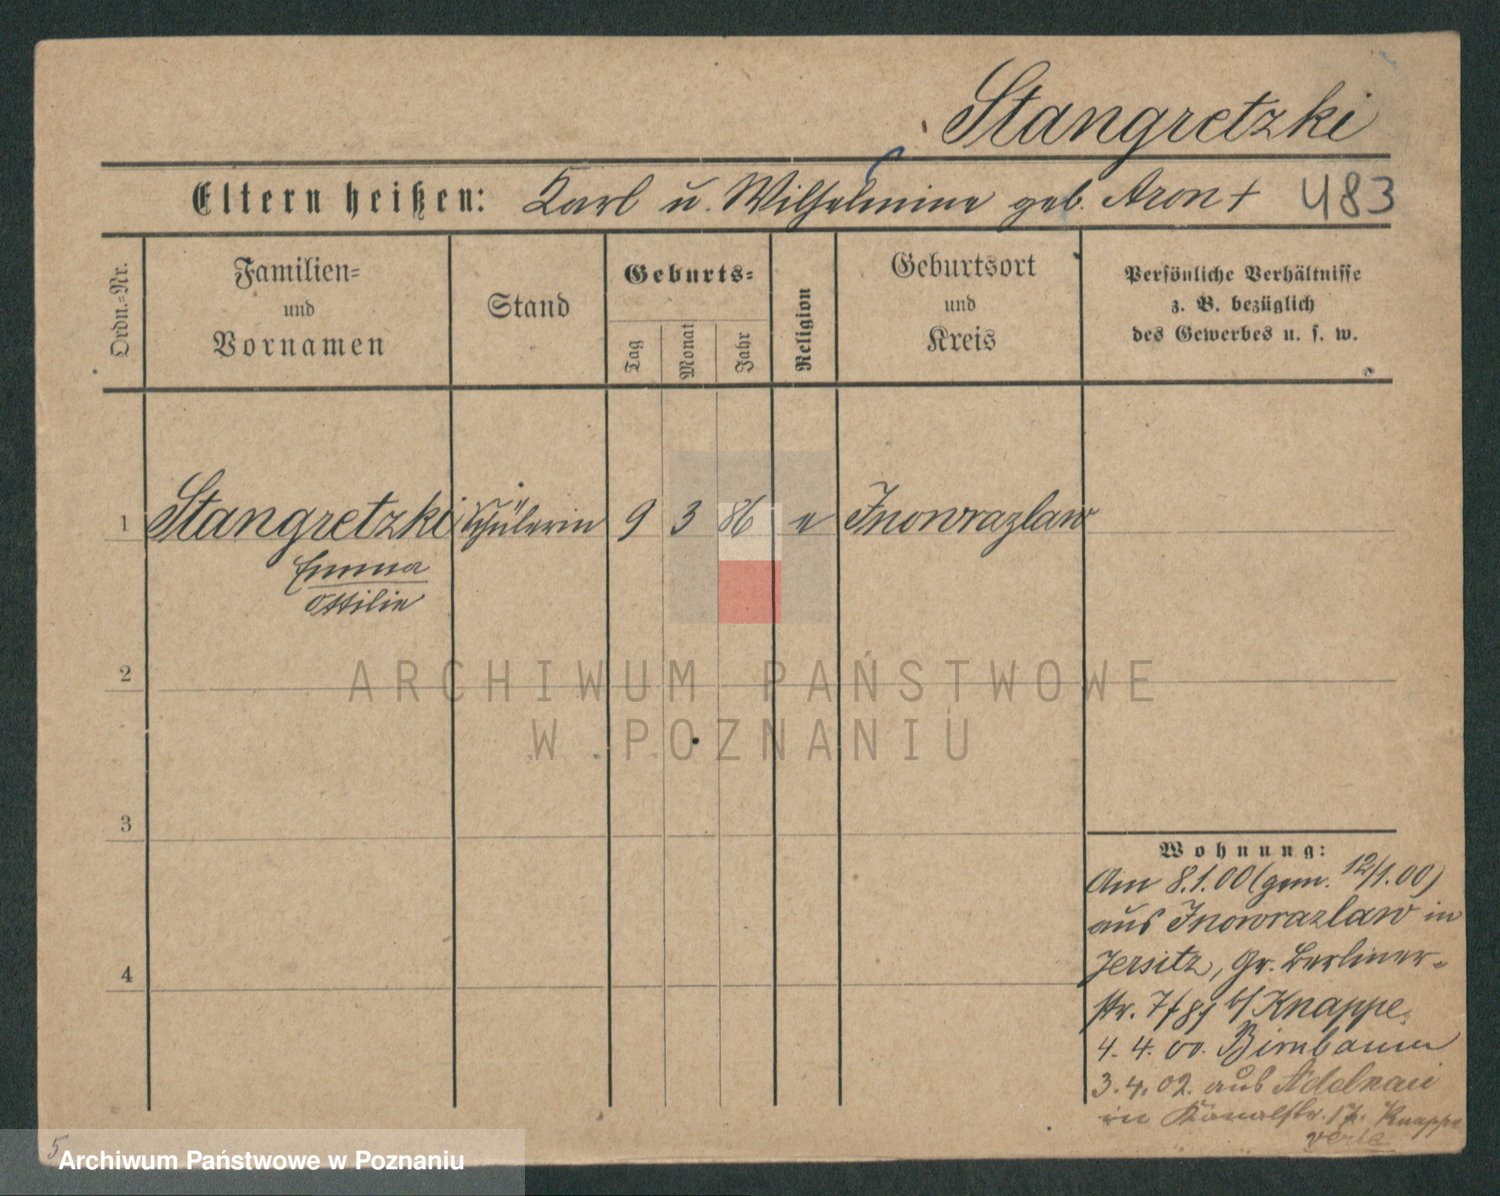 Stangretzki
Eltern heißen: Karl u. Wilhelmine geb. Aron + 483
Ordn.=Nr.
Familien=
und
Vornamen
Stand
Geburts=
Tag
Monat
Jahr
Religion
Geburtsort
und
Kreis
Persönliche Verhältnisse
z. B. bezüglich
des Gewerbes u. s. w.
1 Stangretzki Schülerin 9 3 86 e Inowrazlaw
Emma
Ottilie
2
ARCHIWUM PAŃSTWOWE
W POZNANIU
3
Wohnung:
Am 8.1.00 (gem. 12/1.00)
aus Inowrazlaw in
Jersitz, Gr. Berliner-
str. b/ Knappe.
4
4. 4. 00. Birnbaum
3. 4. 02. aus Adelnau
in Kanalstr. 17. Knappe
verte
5
Archiwum Państwowe w Poznaniu